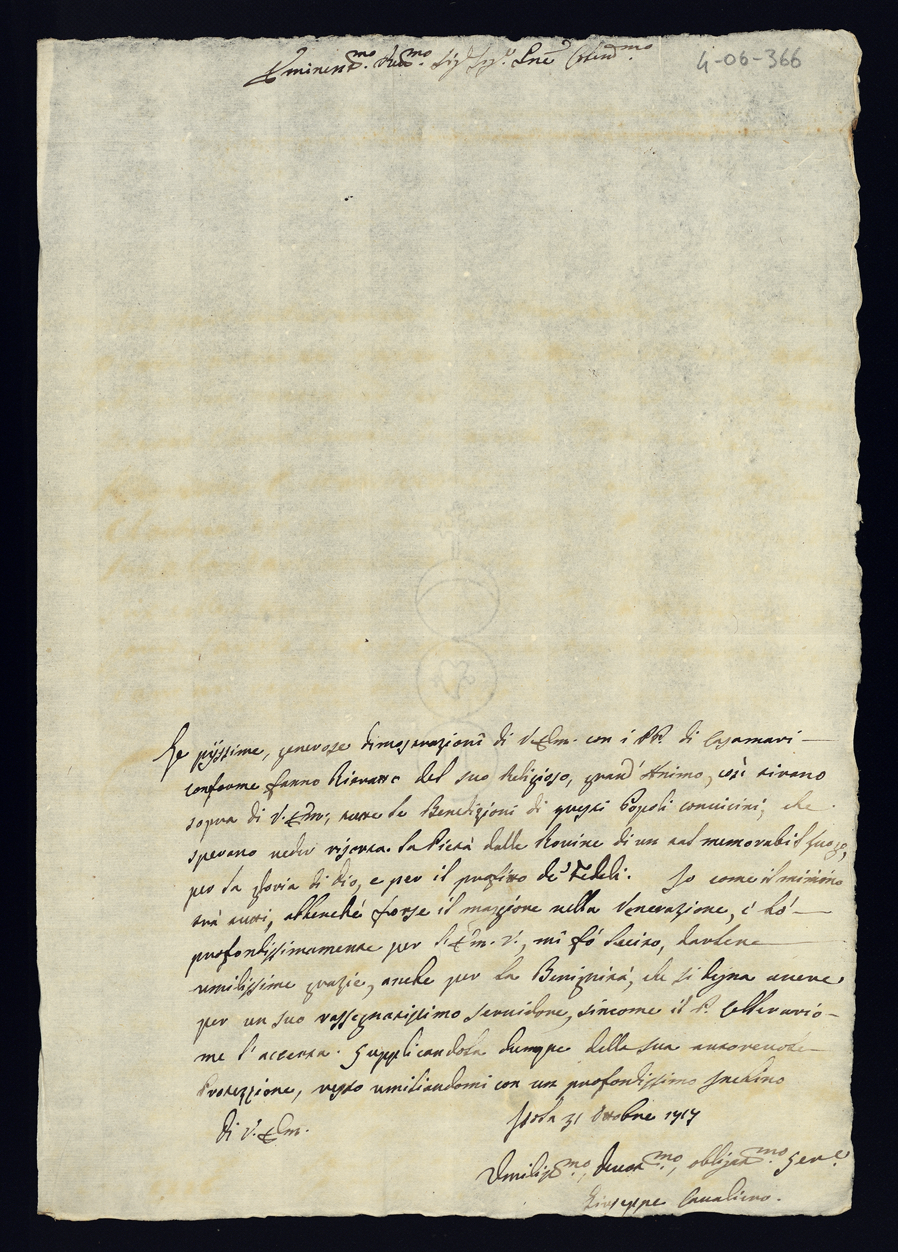 Eminent.mo Reu.mo Sig.r Sig.r Pne Colend.mo
4-06-366
Le pijssime, generose dimostrazioni di V. Em. con i PP. di Casamari
conforme fanno Ritratto del suo Religioso, grand' Animo, così tirano
sopra di V. Em.; tutte le Benedizioni di questi Popoli conuicini, che
sperano ueder risorta la Pietà dalle Rouine di un tal memorabil luogo,
per la gloria di Dio, e per il profitto de' Fedeli. Io come il minimo
trà tutti, abbenche forse il maggiore nella Venerazione, c' hò
profondissimamente per l' Em. V., mi fò lecito, darlene
umilissime grazie, anche per la Benignità, che si degna auere
per un suo rassegnatissimo seruidore, sincome il P. Cellerario
me l' accerta. Supplicandola dunque della sua autoreuole
Protezzione, resto umiliandomi con un profondissimo Inchino
di V. Em.
Isola 31 Ottobre 1717
Umiliss.mo, deuot.mo, obligat.mo Ser.e
Giuseppe Caualiero.